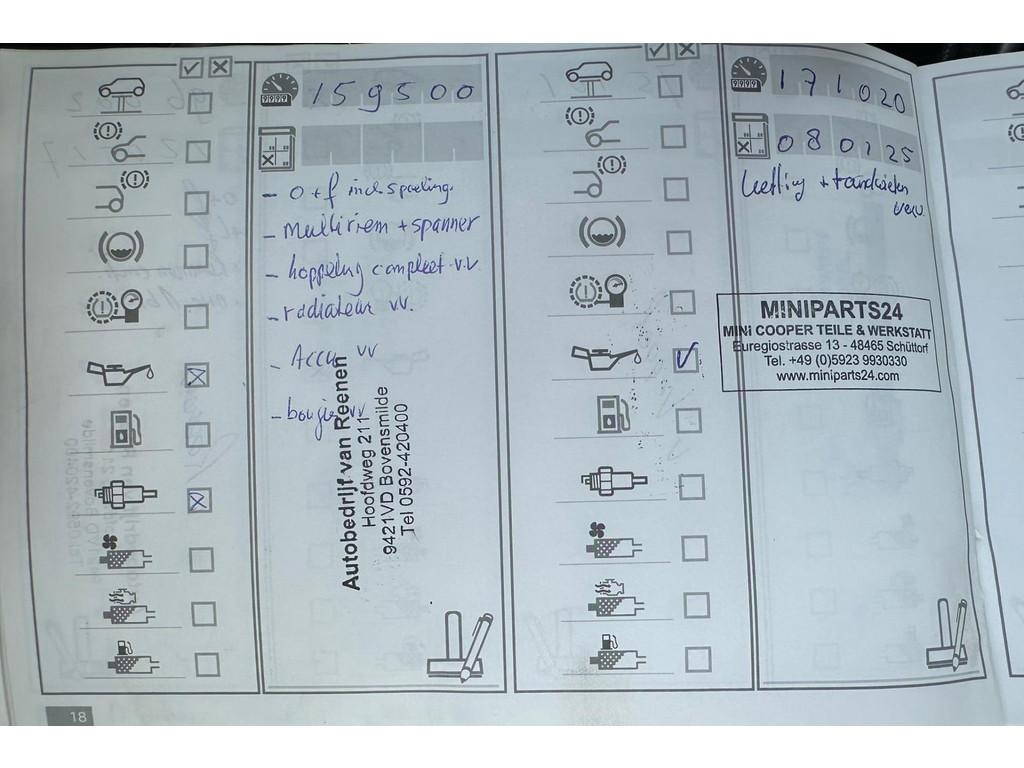 159500
- o+f incl. spoeling.
- multiriem + spanner
- koppeling compleet v.v.
- radiateur v.v.
- Accu vv
- bougie vv
Autobedrijf van Reenen
Hoofdweg 211
9421VD Bovensmilde
Tel 0592-420400
18
171020
080125
ketting + tandwielen
verv.
MINIPARTS24
MINI COOPER TEILE & WERKSTATT
Euregiostrasse 13 - 48465 Schüttorf
Tel. +49 (0)5923 9930330
www.miniparts24.com